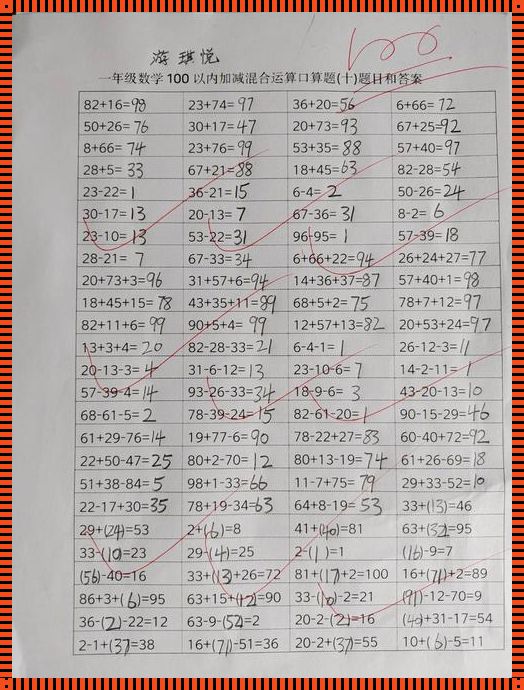 游琪悦
100
一年级数学100以内加减混合运算口算题(十)题目和答案
82+16=98 23+74=97 36+20=56 6+66=72
50+26=76 30+17=47 20+73=93 67+25=92
8+66=74 23+76=99 53+35=88 57+40=97
28+5=33 67+21=88 18+45=63 82-28=54
23-22=1 36-21=15 6-4=2 50-26=24
30-17=13 20-13=7 67-36=31 8-2=6
23-10=13 53-22=31 96-95=1 57-39=18
28-21=7 67-33=34 6+66+22=94 26+24+27=77
20+73+3=96 31+57+6=94 14+36+37=87 57+40+1=98
18+45+15=78 43+35+11=89 68+5+2=75 78+7+12=97
82+11+6=99 90+5+4=99 12+57+13=82 20+53+24=97
13+3+4=20 82-28-33=21 6-4-1=1 26-12-3=11
20-13-3=4 31-6-12=13 23-10-6=7 14-2-11=1
57-39-4=14 93-26-33=34 18-9-6=3 43-20-13=10
68-61-5=2 78-39-24=15 82-61-20=1 90-15-29=46
61+29-76=14 19+77-6=90 78-22+27=83 60-40+72=92
22+50-47=25 80+2-70=12 80+13-19=74 61+26-69=18
51+38-84=5 98+1-33=66 11-7+75=79 29+33-52=10
22-17+30=35 78+19-34=63 64+8-19=53 33+(13)=46
29+(24)=53 2+(6)=8 41+(40)=81 63+(32)=95
33-(10)=23 29-(4)=25 2-(1)=1 (16)-9=7
(56)-40=16 33+(13)+26=72 81+(17)+2=100 16+(71)+2=89
86+3+(6)=95 63+15+(12)=90 33-(10)-2=21 (91)-12-70=9
36-(2)-22=12 63-9-(52)=2 20-2-(2)=16 (40)+31-17=54
2-1+(37)=38 16+(71)-51=36 20-2+(37)=55 10+(6)-5=11